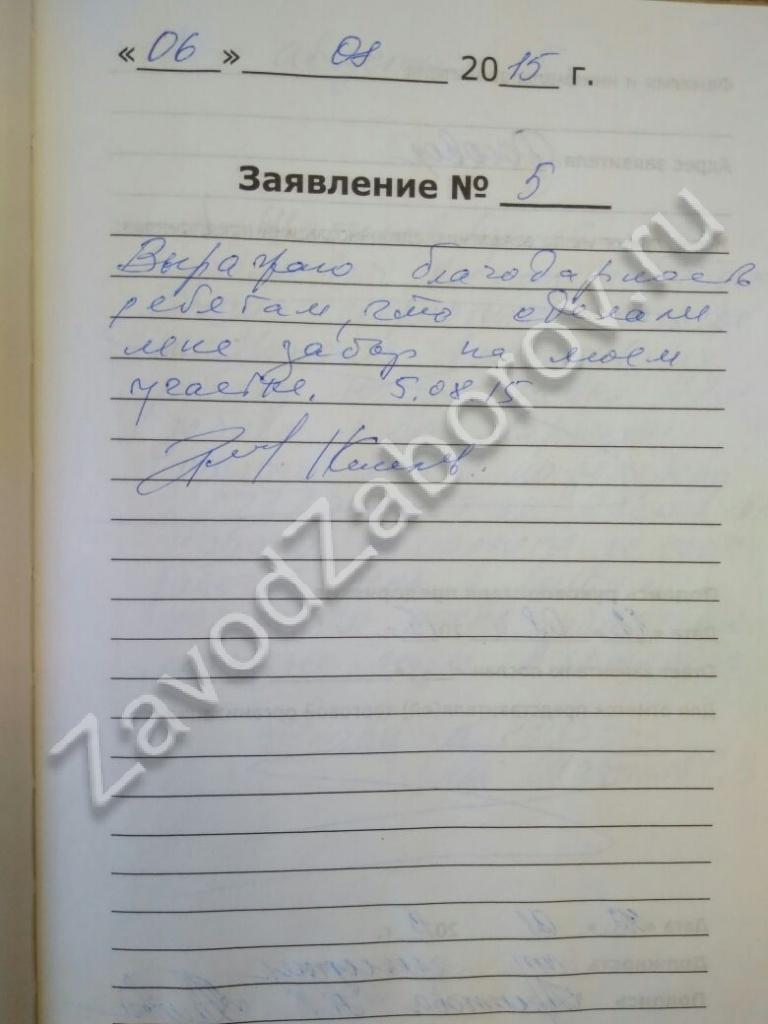 « 06 » 08 2015 г.
Заявление № 5
Выражаю благодарность
ребятам, что сделали
мне забор на моем
участке. 5.08.15
ZavodZaborov.ru